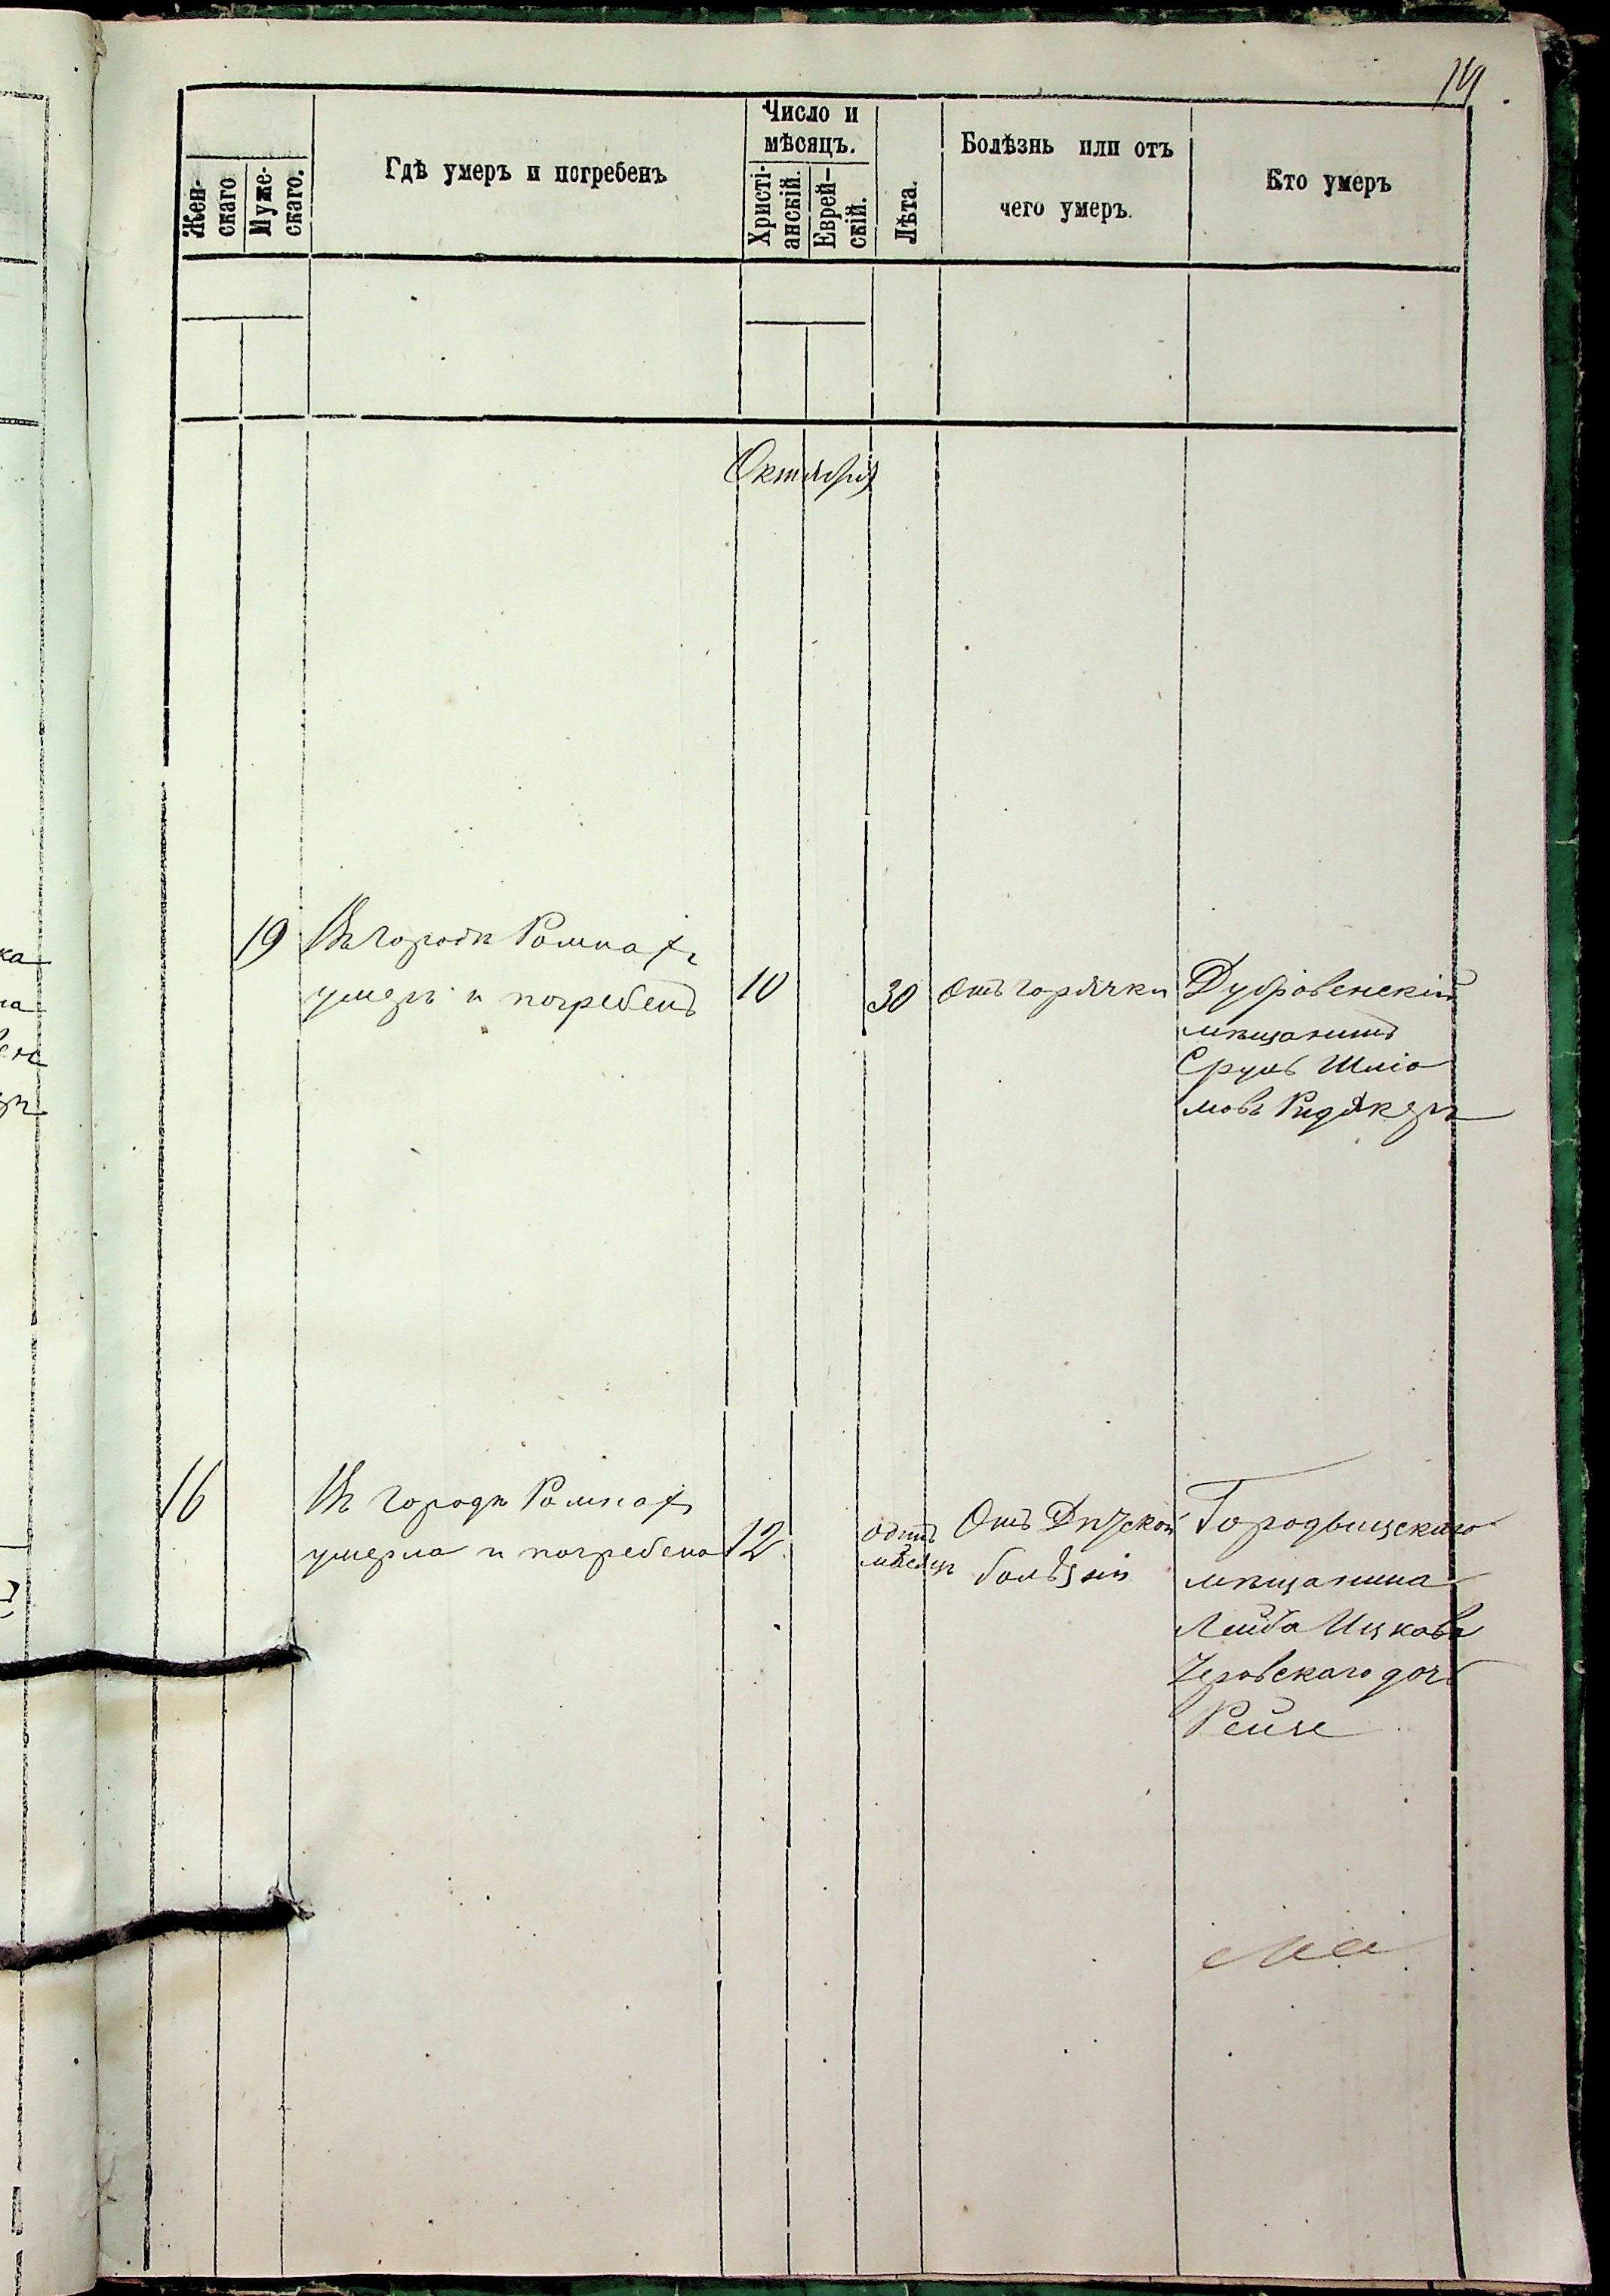 14
Жен-
скаго
Муже-
скаго.
Гдѣ умеръ и погребенъ
Число и
мѣсяцъ.
Христі-
анскій.
Еврей-
скій.
Лѣта.
Болѣзнь или отъ
чего умеръ.
Кто умеръ
Октября
19
Въ городѣ Ромнахъ
умеръ и погребенъ
10
30
Отъ горячки
Дубровенскій
мѣщанинъ
Сруль Шліо
мовъ
16
Въ городѣ Ромнахъ
умерла и погребена
12
одинъ
мѣсяцъ
Отъ Дѣтской
болѣзни
Городыщскаго
мѣщанина
Лейба Ицкова
дочь
Рейзе